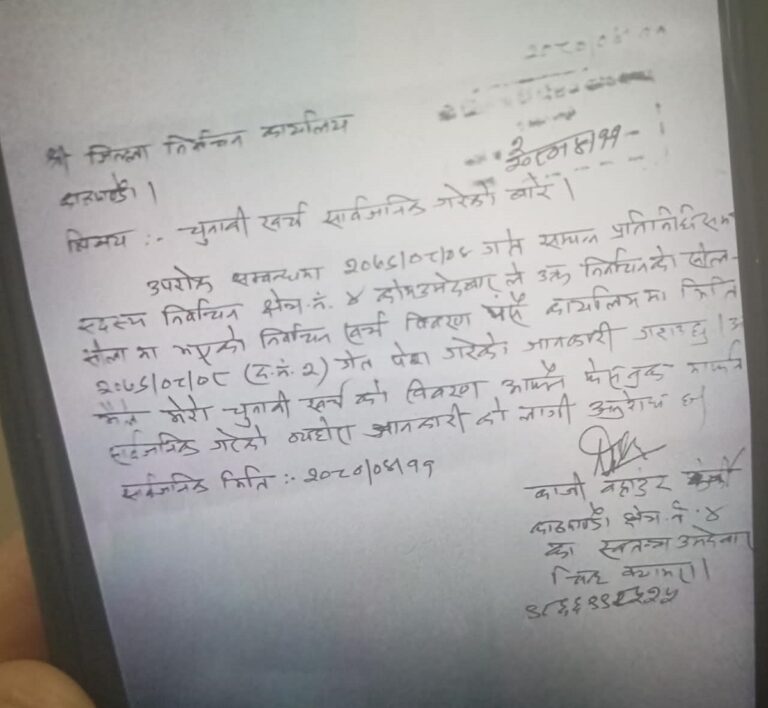 २०८०/०४/११
श्री जिल्ला निर्वाचन कार्यालय
२०८०/४/११
काठमाडौं ।
बिषय :- चुनावी खर्च सार्वजनिक गरेको बारे ।
उपरोक्त सम्बन्धमा २०७९/०८/०४ गते सम्पन्न प्रतिनिधि सभा
सदस्य निर्वाचन क्षेत्र नं. ४ को म उमेदबार ले उक्त निर्वाचनको
मा भएको निर्वाचन खर्च विवरण कार्यालय मा मिति
२०७९/०८/०८ (द.नं. २) गते पेश गरेको जानकारी गराउछु ।
मैले मेरो चुनावी खर्च को विवरण आफ्नै फेसबुक मार्फत
सार्वजनिक गरेको व्यहोरा जानकारी को लागी अनुरोध छ ।
सार्वजनिक मिति :- २०८०/०४/११
काजी बहादुर
काठमाडौं क्षेत्र नं. ४
का स्वतन्त्र उमेदबार
चिन्ह क्यामरा ।